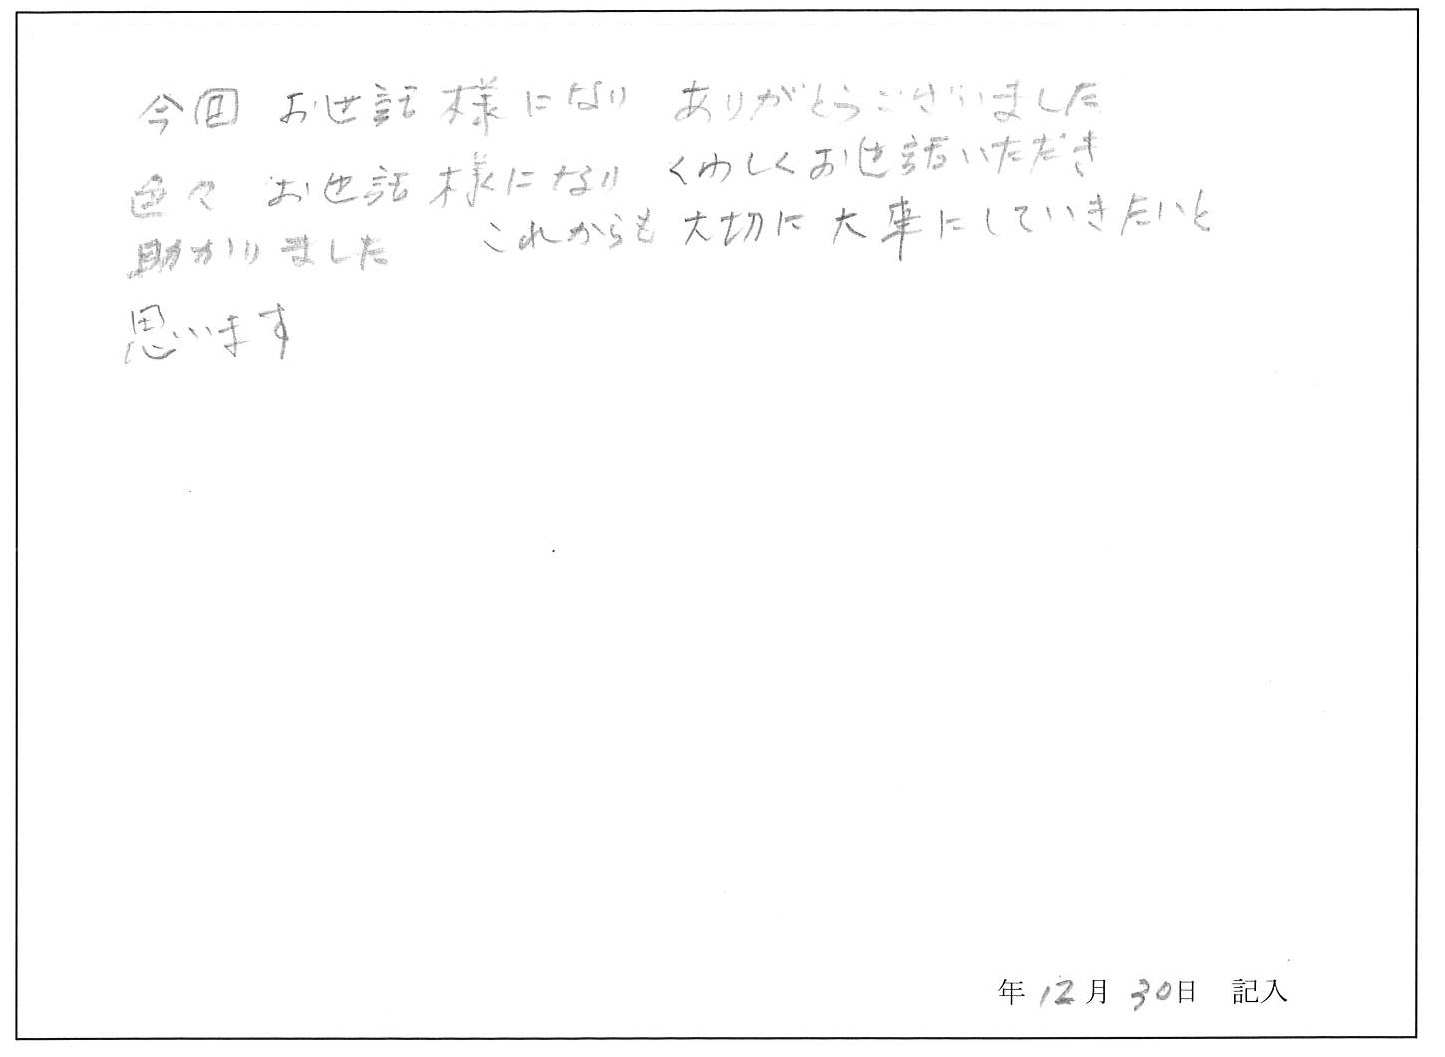 今回 お世話様になり ありがとうございました
色々 お世話様になり くわしくお世話いただき
助かりました これからも 大切に 大事にしていきたいと
思います
年 12 月 30 日 記入